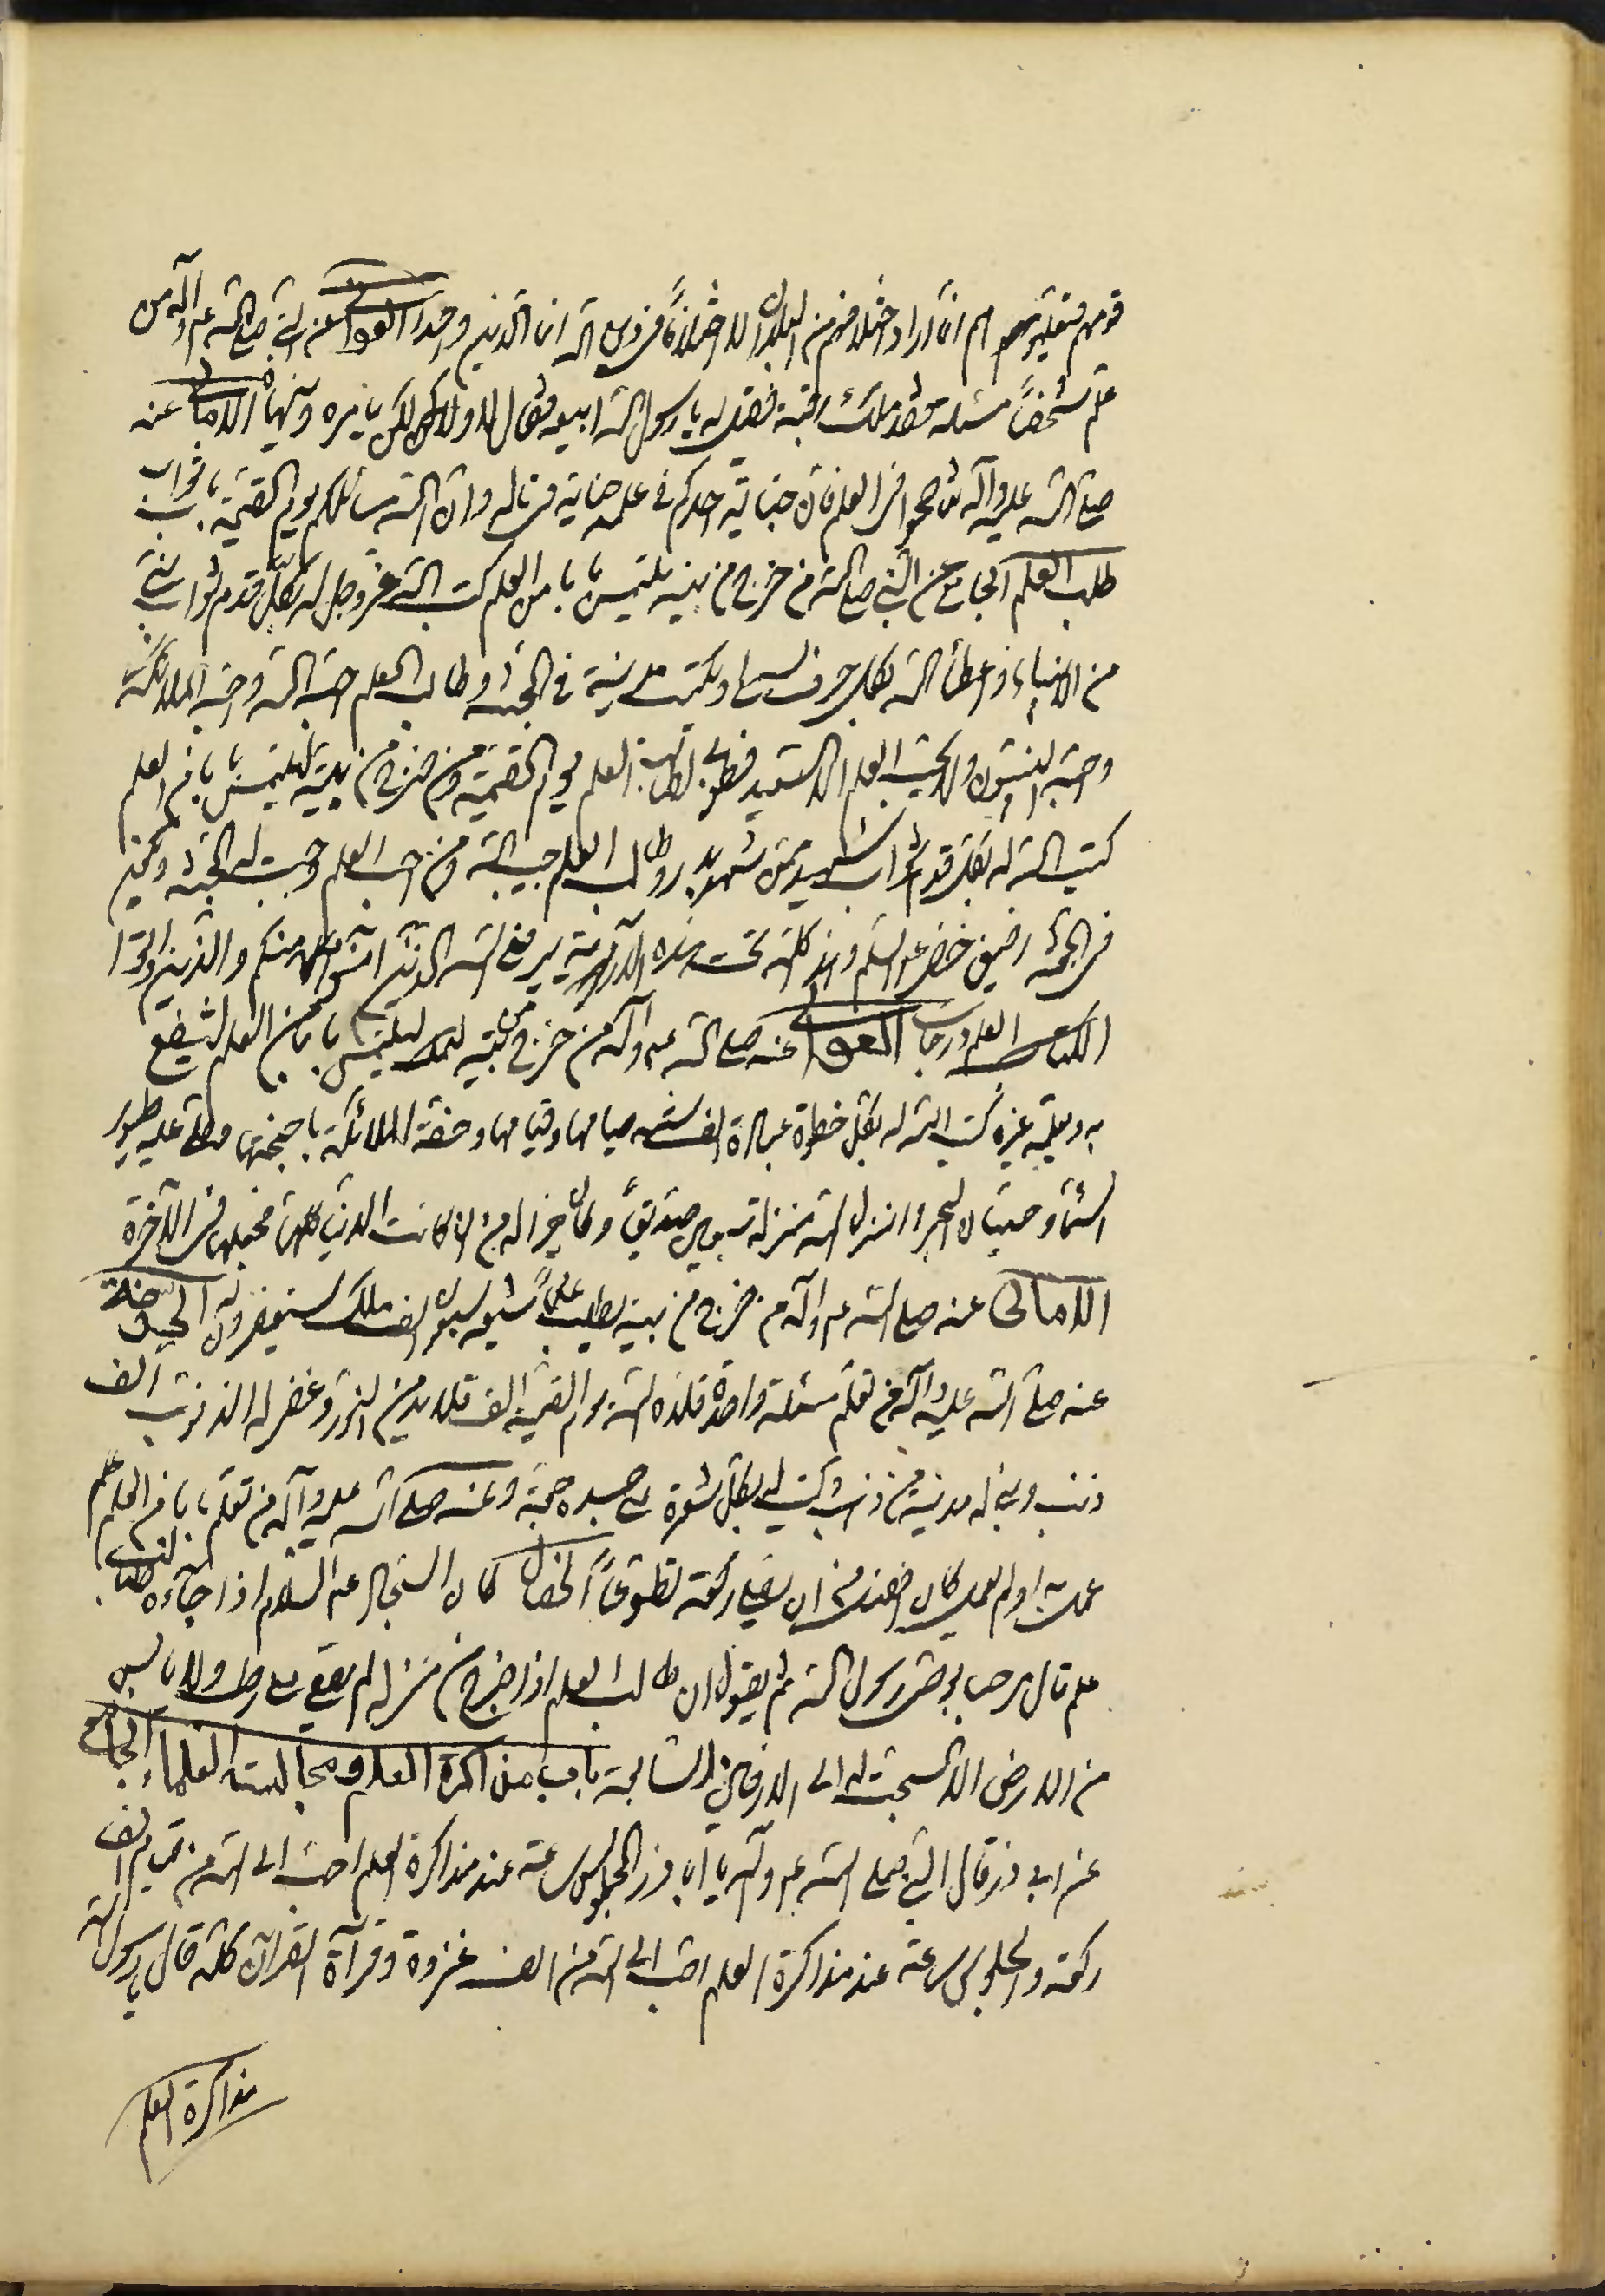 قومهم فيعلموهم انما اراد اختلافهم من البلدان لا اختلافاً في دين الله انما الدين واحد العوالي عن النبي صلى الله عليه وآله من
علم شخصاً مسئلة فقد ملك رقبته فقيل له يا رسول الله ايبيعه فقال لا ولكن يامره وينهاه الامالي عنه
صلى الله عليه وآله تناصحوا في العلم فان خيانة احدكم في علمه خيانة في ماله وان الله سائلكم يوم القيمة باب ثواب
طلب العلم الجامع عن النبي صلى الله من خرج من بيته يلتمس بابا من العلم كتب الله عز وجل له بكل قدم ثواب نبي
من الانبياء واعطاه الله بكل حرف يسمع او يكتب مدينة في الجنة وطالب العلم احبه الله واحبه الملائكة
واحبه النبيون ولا يحب العلم الا السعيد فطوبى لطالب العلم يوم القيمة ومن خرج من بيته يلتمس بابا من العلم
كتب الله له بكل قدم ثواب شهيد من شهداء بدر وطالب العلم حبيب الله ومن احب العلم وجبت له الجنة
في الجنة رفيق خضر عليه السلم وهذا كله تحت هذه الآية يرفع الله الذين آمنوا منكم والذين اوتوا
العلم درجات العوالي عنه صلى الله عليه وآله من خرج من بيته ليلتمس بابا من العلم لينتفع
به ويعلمه غيره كتب الله له بكل خطوة عبادة الف سنة صيامها وقيامها وحفته الملائكة باجنحتها وصلى عليه طيور
السماء وحيتان البحر وانزله الله منزلة سبعين صديقاً وكان خيرا له من ان كانت الدنيا كلها له فجعلها في الآخرة
الامالي عنه صلى الله عليه وآله من خرج من بيته يطلب علماً شيعه سبعون الف ملك يستغفرون له
عنه صلى الله عليه وآله من تعلم مسئلة واحدة قلده الله يوم القيمة الف قلائد من النور وغفر له الف
ذنب وبنى له مدينة من ذهب وكتب له بكل شعرة على جسده حجة وعنه صلى الله عليه وآله من تعلم بابا من العلم
عمل به او لم يعمل كان افضل من ان يصلي الف ركعة تطوعاً الخصال كان السجاد عليه السلام اذا جاءه طالب
علم قال مرحبا بوصية رسول الله ثم يقول ان طالب العلم اذا خرج من منزله لم يضع على رطب ولا يابس
من الارض الا سبحت له الى الارضين السابعة باب مذاكرة العلم ومجالسة العلماء الجامع
عن ابي ذر قال النبي صلى الله عليه وآله يا ابا ذر الجلوس ساعة عند مذاكرة العلم احب الى الله من قيام الف
ركعة والجلوس ساعة عند مذاكرة العلم احب الى الله من الف غزوة وقرآءة القرآن كله قال يا رسول الله
مذاكرة العلم